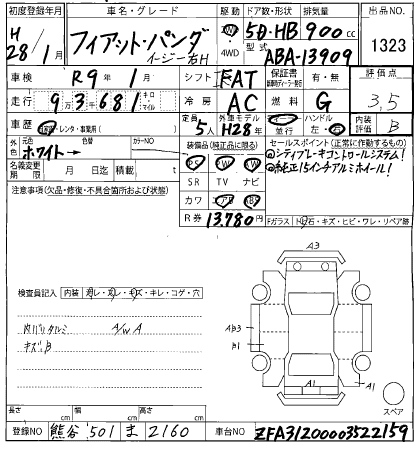 初度登録年月
車名・グレード
駆動
ドア数・形状
排気量
出品NO.
H
28/1月
フィアット・パンダ
イージー右H
2WD
4WD
5D・HB
900 cc
型式
ABA-13909
1323
車検
R9年1月
シフト
FAT
保証書
有・無
評価点
3,5
走行
9万3千681
キロ
マイル
冷房
AC
燃料
G
車歴
自家用・レンタ・事業用( )
定員
5人
外車モデル
H28年
ディーラー
並行
ハンドル
左・右
内装
評価
B
外色
元色
色替
カラーNO
ホワイト→
装備品(純正品に限る)
セールスポイント(正常に作動するもの)
@シティブレーキコントロールシステム!
@純正15インチアルミホイール!
名義変更
期限
月
日迄
積載
t
PS
PW
SR
TV
ナビ
カワ
エアB
ABS
R券
13,780円
注意事項(欠品・修復・不具合箇所および状態)
Fガラス
飛石・キズ・ヒビ・ワレ・リペア跡
検査員記入
内装
汚レ・スレ・キズ・キレ・コゲ・穴
内バリタルミ
A/W A
キズB
A3
AB3
B1
A1
A1
スペア
長さ
cm
幅
cm
高さ
cm
登録NO
熊谷 501 ま 2160
車台NO
ZFA31200003522159